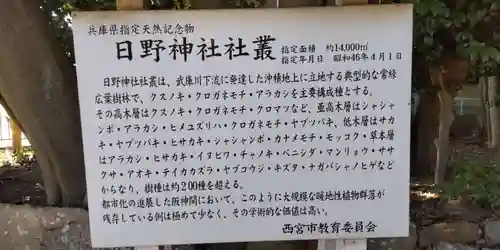 兵庫県指定天然記念物
日野神社社叢 指定面積 約14,000㎡
指定年月日 昭和46年4月1日
日野神社社叢は、武庫川下流に発達した沖積地上に立地する典型的な常緑
広葉樹林で、クスノキ・クロガネモチ・アラカシを主要構成種とする。
その高木層はクスノキ・クロガネモチ・クロマツなど、亜高木層はシャシャ
ンボ・アラカシ・ヒメユズリハ・クロガネモチ・ヤブツバキ、低木層はサカ
キ・ヤブツバキ・ヒサカキ・シャシャンボ・カナメモチ・モッコク、草本層
はアラカシ・ヒサカキ・イヌビワ・チャノキ・ベニシダ・マンリョウ・ササ
クサ・アオキ・テイカカズラ・ヤブコウジ・キズタ・ナガバジャノヒゲなど
からなり、樹種は約200種を超える。
都市化の進展した阪神間において、このように大規模な暖地性植物群落が
残存している例は極めて少なく、その学術的な価値は高い。
西宮市教育委員会